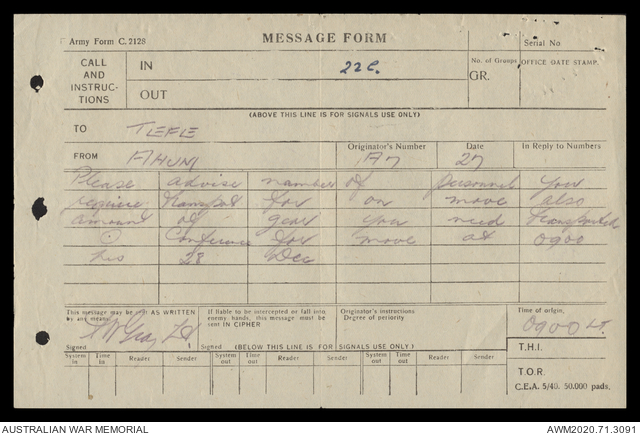 Army Form C. 2128
MESSAGE FORM
Serial No
CALL AND INSTRUC-TIONS
IN
22C.
No. of Groups
GR.
OFFICE DATE STAMP.
OUT
(ABOVE THIS LINE IS FOR SIGNALS USE ONLY)
TO
TEFLE
FROM
AHUM
Originator's Number
1A7
Date
27
In Reply to Numbers
Please advise number of personnel you
require transport for on move also
amount of gear you need transported
⊙ Conference for move at 0900
hrs 28 Dec
This message may be sent AS WRITTEN by any means.
If liable to be intercepted or fall into enemy hands, this message must be sent IN CIPHER
Originator's instructions Degree of periority
Time of origin.
0900 LT.
Signed
Signed
(BELOW THIS LINE IS FOR SIGNALS USE ONLY)
T.H.I.
System in
Time in
Reader
Sender
System out
Time out
Reader
Sender
System out
Time out
Reader
Sender
T.O.R.
C.E.A. 5/40. 50.000 pads.
AUSTRALIAN WAR MEMORIAL
AWM2020.71.3091